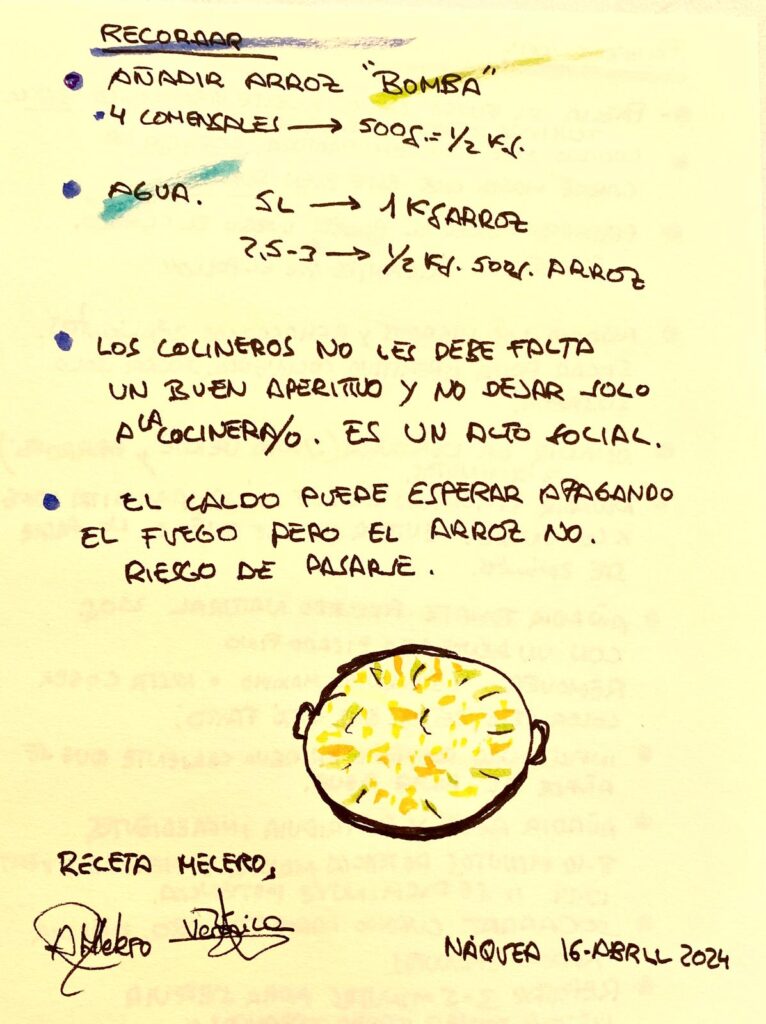 RECORDAR
AÑADIR ARROZ "BOMBA"
4 COMENSALES → 500g. = 1/2 Kg.
AGUA. 5L → 1 Kg ARROZ
2,5-3 → 1/2 Kg. 500g. ARROZ
LOS COCINEROS NO LES DEBE FALTA
UN BUEN APERITIVO Y NO DEJAR SOLO
A LA COCINERA/O. ES UN ACTO SOCIAL.
EL CALDO PUEDE ESPERAR APAGANDO
EL FUEGO PERO EL ARROZ NO.
RIESGO DE PASARSE.
RECETA MELERO,
Verónica
NÁQUERA 16-ABRIL 2024